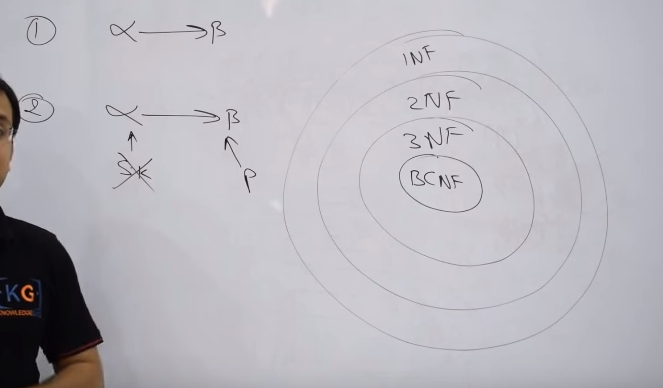 ① α → β
② α → β
SK
P
1NF
2NF
3NF
BCNF
KG
KNOWLEDGE